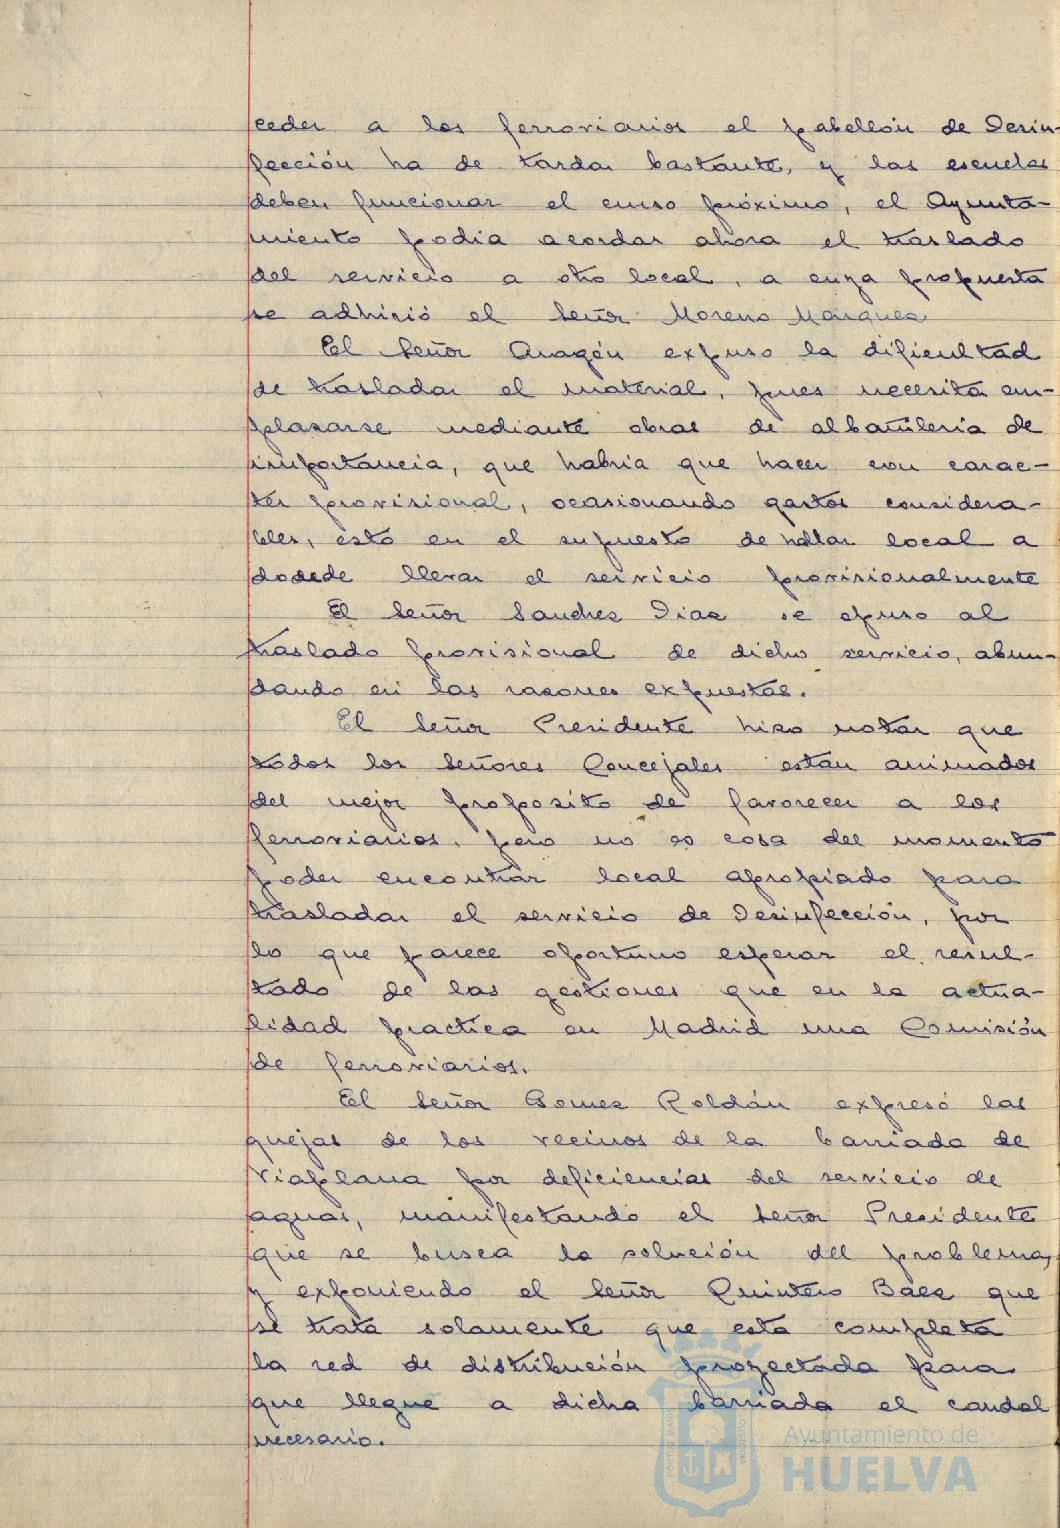 ceder a los ferroviarios el pabellón de Desin-
fección ha de tardar bastante, y las escuelas
deben funcionar el curso próximo, el Ayunta-
miento podia acordar ahora el traslado
del servicio a otro local, a cuya propuesta
se adhirió el Señor Moreno Márquez
El Señor Aragón expuso la dificultad
de trasladar el material, pues necesita em-
plazarse mediante obras de albañileria de
importancia, que habria que hacer con carac-
ter provisional, ocasionando gastos considera-
bles, esto en el supuesto de hallar local a
dodede llevar el servicio provisionalmente
El Señor Sanchez Diaz se opuso al
traslado provisional de dicho servicio, abun-
dando en las razones expuestas.
El Señor Presidente hizo notar que
todos los Señores Concejales están animados
del mejor proposito de favorecer a los
ferroviarios, pero no es cosa del momento
poder encontrar local apropiado para
trasladar el servicio de Desinfección, por
lo que parece oportuno esperar el resul-
tado de las gestiones que en la actua-
lidad practica en Madrid una Comisión
de ferroviarios.
El Señor Gomez Roldán expresó las
quejas de los vecinos de la barriada de
Viaplana por deficiencias del servicio de
aguas, manifestando el Señor Presidente
que se busca la solución del problema,
y exponiendo el Señor Quintero Báez que
se trata solamente que esta completa
la red de distribución proyectada para
que llegue a dicha barriada el caudal
necesario.
Ayuntamiento de
HUELVA